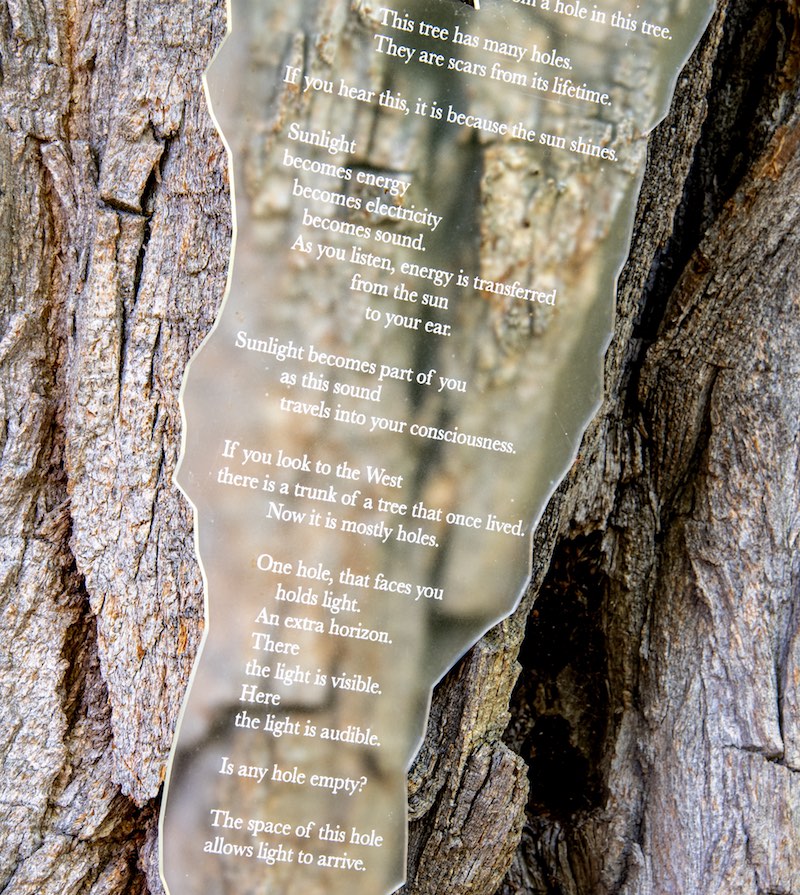 a hole in this tree.
This tree has many holes.
They are scars from its lifetime.
If you hear this, it is because the sun shines.
Sunlight
becomes energy
becomes electricity
becomes sound.
As you listen, energy is transferred
from the sun
to your ear.
Sunlight becomes part of you
as this sound
travels into your consciousness.
If you look to the West
there is a trunk of a tree that once lived.
Now it is mostly holes.
One hole, that faces you
holds light.
An extra horizon.
There
the light is visible.
Here
the light is audible.
Is any hole empty?
The space of this hole
allows light to arrive.